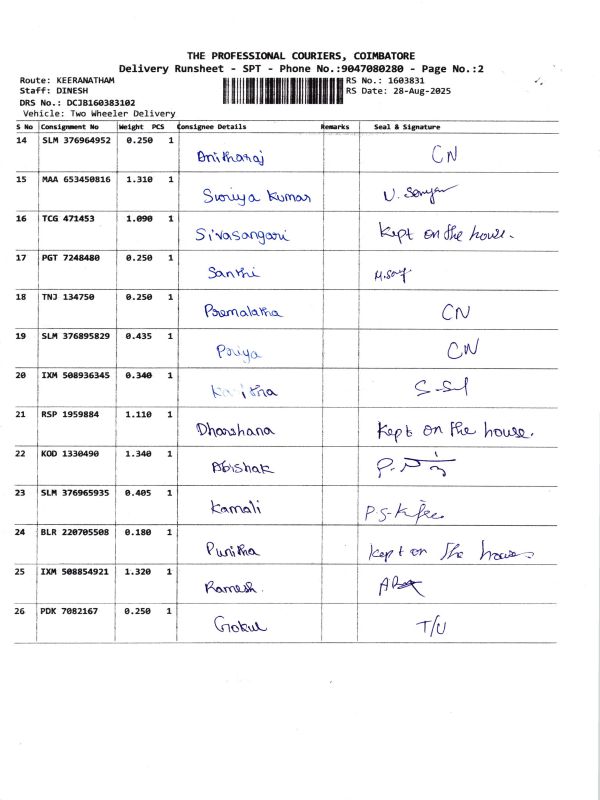 THE PROFESSIONAL COURIERS, COIMBATORE
Delivery Runsheet - SPT - Phone No.:9047080280 - Page No.:2
Route: KEERANATHAM RS No.: 1603831
Staff: DINESH RS Date: 28-Aug-2025
DRS No.: DCJB160383102
Vehicle: Two Wheeler Delivery
S No Consignment No Weight PCS Consignee Details Remarks Seal & Signature
14 SLM 376964952 0.250 1 Anitharaj CN
15 MAA 653450816 1.310 1 Suriya Kumar
16 TCG 471453 1.090 1 Sivasangari Kept on the house.
17 PGT 7248480 0.250 1 Santhi
18 TNJ 134750 0.250 1 Premalatha CN
19 SLM 376895829 0.435 1 Priya CN
20 IXM 508936345 0.340 1 Kavitha
21 RSP 1959884 1.110 1 Dharshana Kept on the house.
22 KOD 1330490 1.340 1 Abishak
23 SLM 376965935 0.405 1 Kamali
24 BLR 220705508 0.180 1 Punitha Kept on the house
25 IXM 508854921 1.320 1 Ramesh.
26 PDK 7082167 0.250 1 Gokul T/U